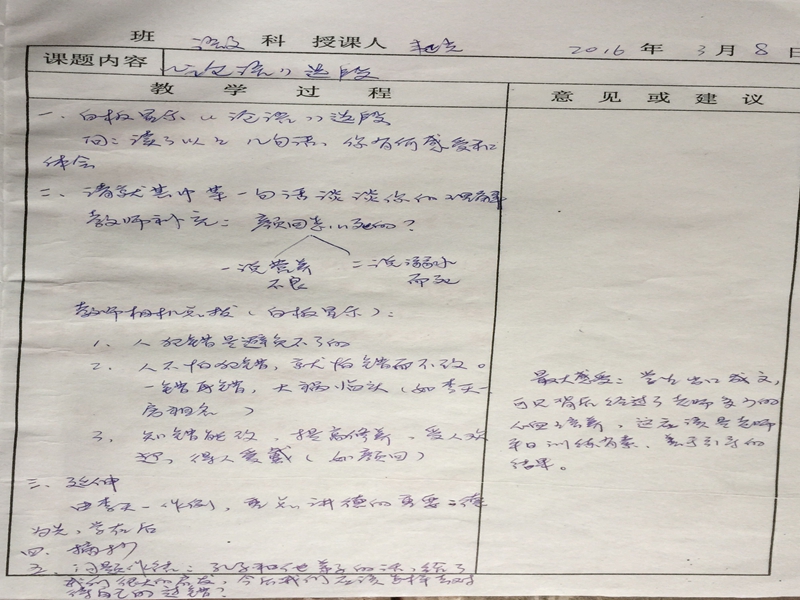 班 语文 科 授课人 2016 年 3 月 8 日
课题内容 《论语》选段
教 学 过 程 意 见 或 建 议
一、白板显示《论语》选段
问：读了以上几句话，你有何感受和
体会
二、请就其中某一句话谈谈你的理解
教师补充：颜回怎么死的？
一说营养不良 二说溺水而死
教师相机点拔（白板显示）：
1、人犯错是避免不了的
2、人不怕犯错，就怕错而不改。
一错再错，大祸临头（如李天一
房祖名）
3、知错能改，提高修养，受人欢
迎，得人爱戴（如颜回）
三、延伸
由李天一作例，再谈讲德的重要：德
为先，学在后
四、摘抄
五、问题作结：孔子和他弟子的话，给了
我们很大的启发，今后我们应该怎样去对
待自己的过错？
最大感受：学生出口成文，
可见背后经过了老师多少的
心血培养，这应该是老师
平日训练有素、善于引导的
结果。